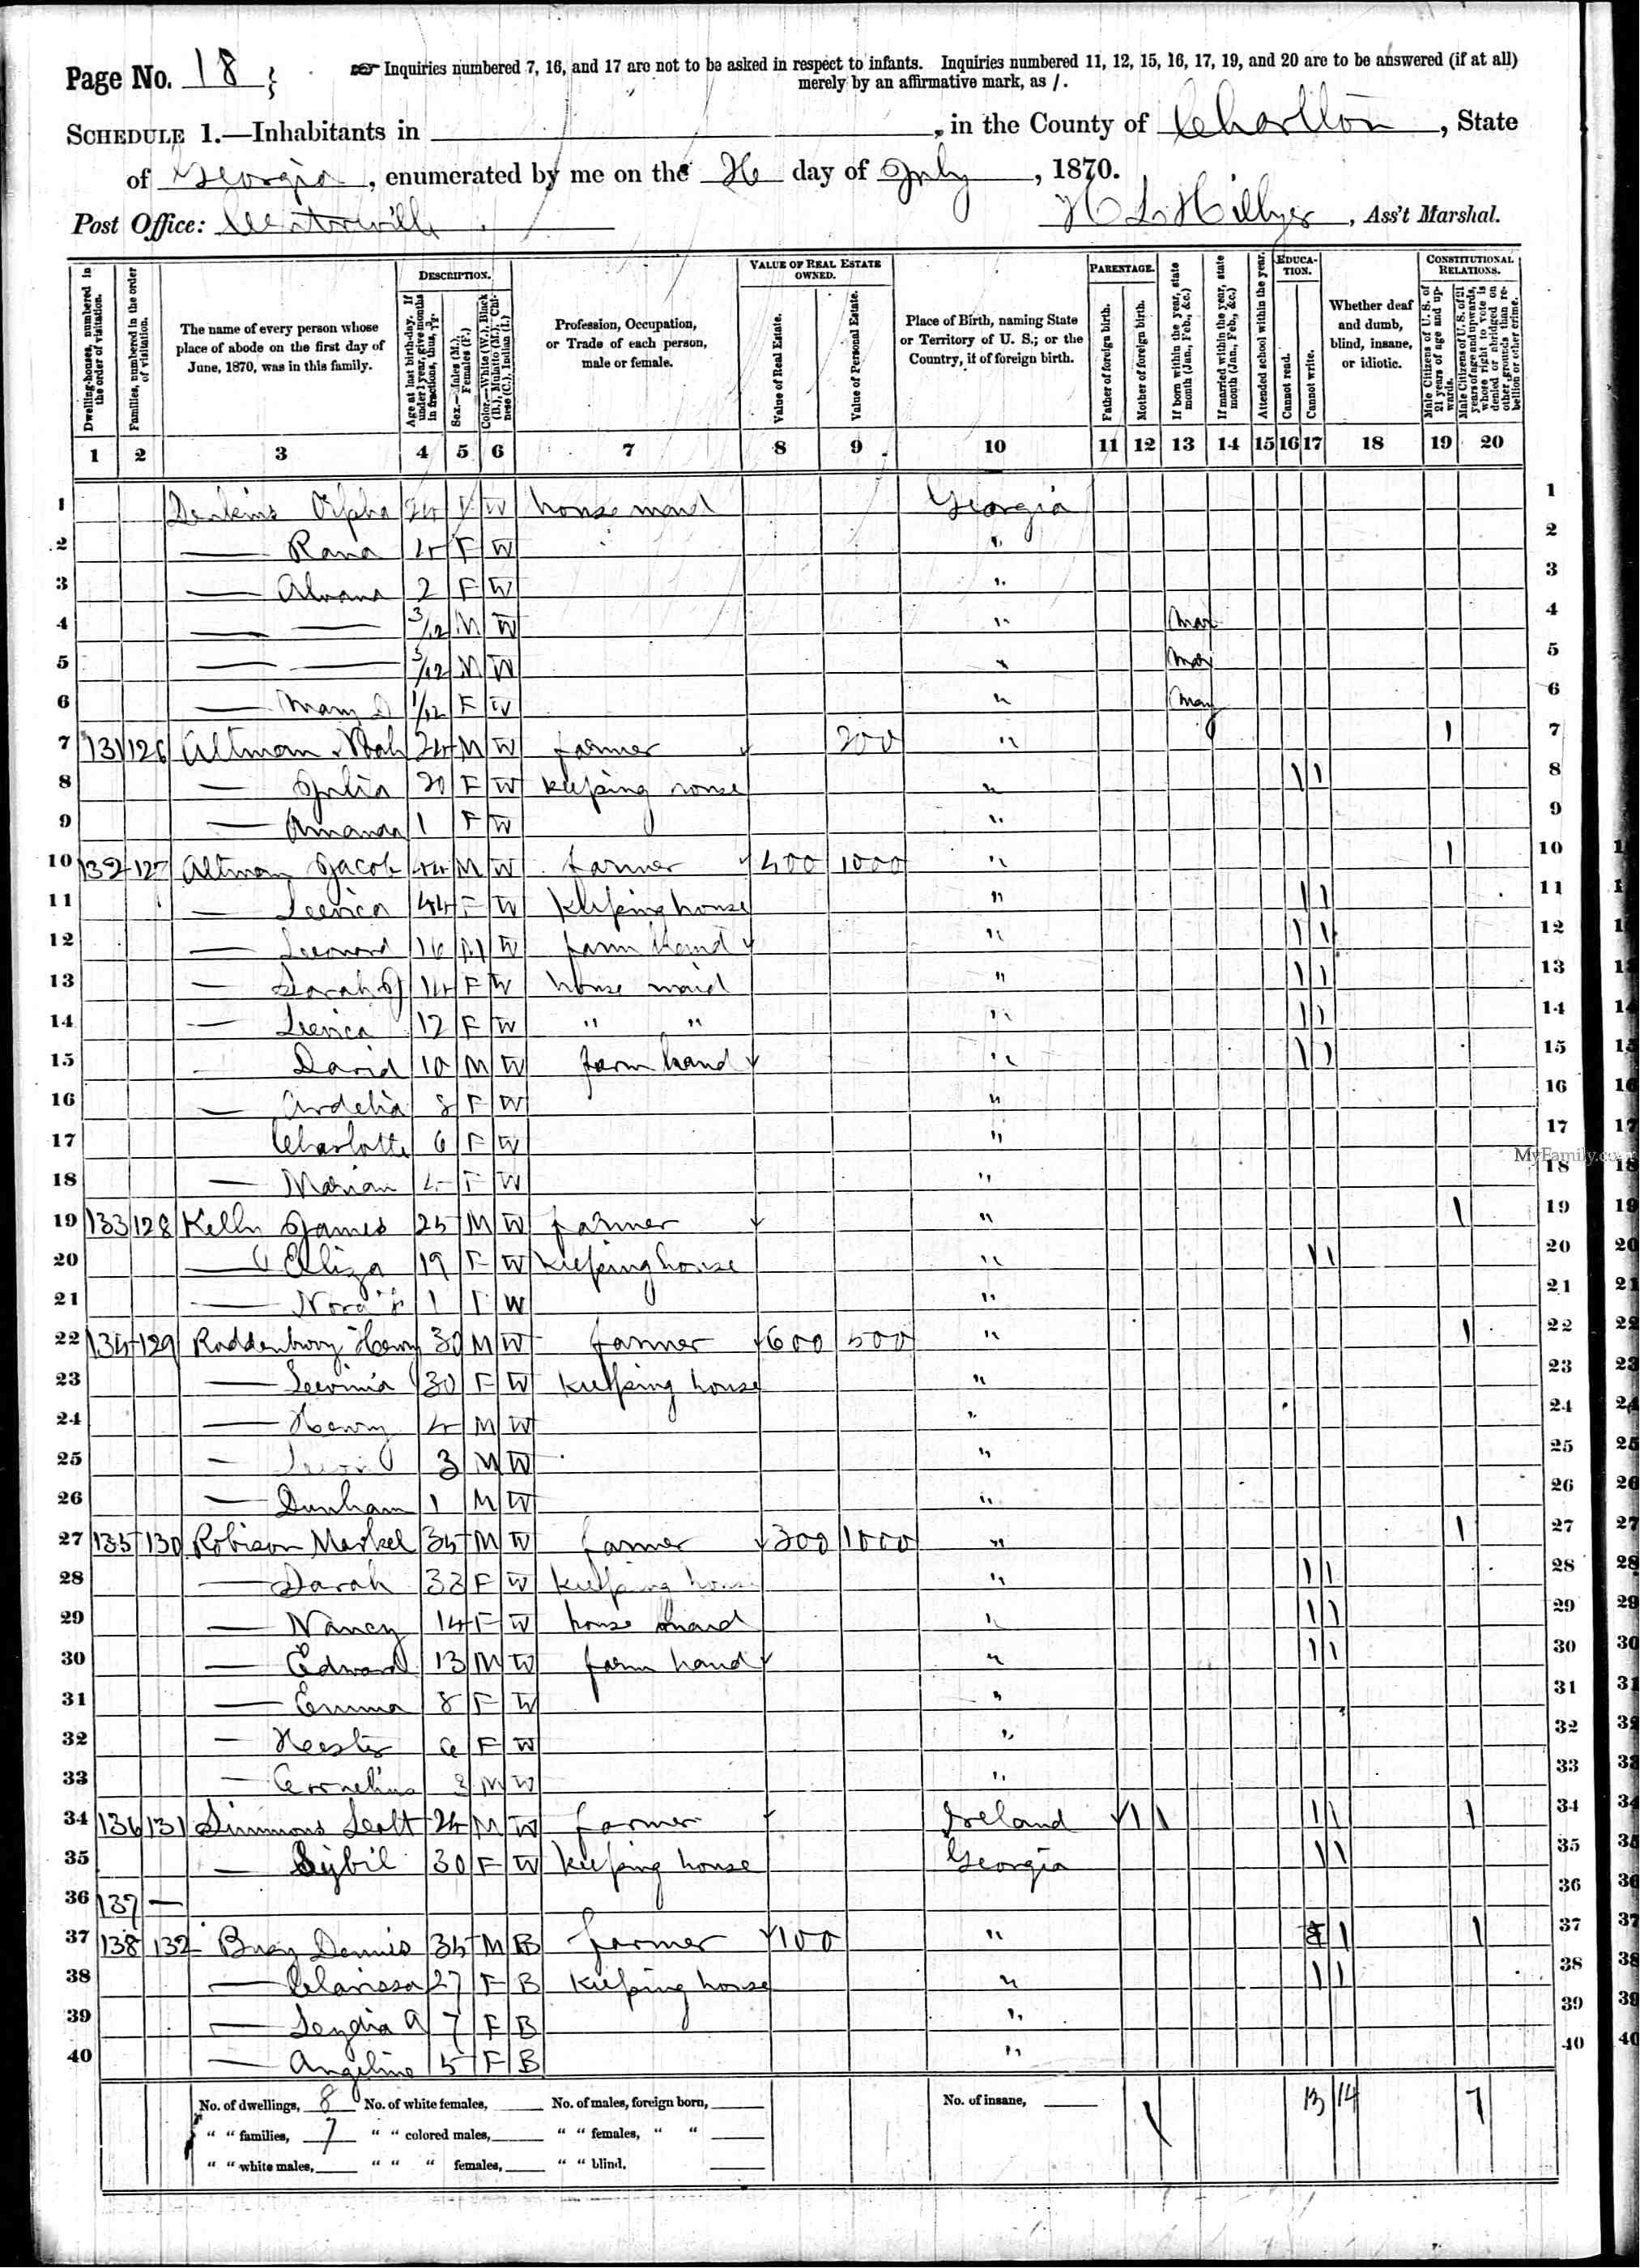 Page No. 18 } Inquiries numbered 7, 16, and 17 are not to be asked in respect to infants. Inquiries numbered 11, 12, 15, 16, 17, 19, and 20 are to be answered (if at all)
merely by an affirmative mark, as /.
SCHEDULE 1.—Inhabitants in , in the County of Charlton, State
of Georgia, enumerated by me on the 26 day of July, 1870.
Post Office: H L Hillyer, Ass't Marshal.
Dwelling-houses, numbered in the order of visitation.
Families, numbered in the order of visitation.
The name of every person whose place of abode on the first day of June, 1870, was in this family.
DESCRIPTION.
Age at last birth-day. If under 1 year, give months in fractions, thus, 3/12.
Sex.—Males (M.), Females (F.)
Color.—White (W.), Black (B.), Mulatto (M.), Chinese (C.), Indian (I.)
Profession, Occupation, or Trade of each person, male or female.
VALUE OF REAL ESTATE OWNED.
Value of Real Estate.
Value of Personal Estate.
Place of Birth, naming State or Territory of U. S.; or the Country, if of foreign birth.
PARENTAGE.
Father of foreign birth.
Mother of foreign birth.
If born within the year, state month (Jan., Feb., &c.)
If married within the year, state month (Jan., Feb., &c.)
Attended school within the year.
EDUCATION.
Cannot read.
Cannot write.
Whether deaf and dumb, blind, insane, or idiotic.
CONSTITUTIONAL RELATIONS.
Male Citizens of U. S. of 21 years of age and upwards.
Male Citizens of U. S. of 21 years of age and upwards, whose right to vote is denied or abridged on other grounds than rebellion or other crime.
1 2 3 4 5 6 7 8 9 10 11 12 13 14 15 16 17 18 19 20
1 Orpha 24 F W house maid Georgia 1
2 — Rana 4 F W " 2
3 — 2 F W " 3
4 — — 3/12 M W " Mar 4
5 — — 3/12 M W " Mar 5
6 — Mary 1/12 F W " May 6
7 131 126 Altman Noah 24 M W farmer 200 " 1 7
8 — Julia 20 F W keeping house " 1 1 8
9 — Amanda 1 F W " 9
10 132 127 Altman Jacob 44 M W farmer 400 1000 " 1 10
11 — 44 F W keeping house " 1 1 11
12 — Leonard 16 M W farm hand " 1 1 12
13 — Sarah J 14 F W house maid " 1 1 13
14 — 12 F W " " " 1 1 14
15 — David 10 M W farm hand " 1 1 15
16 — Ardelia 8 F W " 16
17 Charlotte 6 F W " 17
18 — Marian 4 F W " 18
19 133 128 Kelly James 25 M W farmer " 1 19
20 — Eliza 19 F W keeping house " 1 1 20
21 — Nora 1 F W " 21
22 134 129 Roddenbury Henry 30 M W farmer 600 500 " 1 22
23 — 30 F W keeping house " 23
24 — Henry 4 M W " 24
25 — 3 M W " 25
26 — Dunham 1 M W " 26
27 135 130 Robison 35 M W farmer 300 1000 " 1 27
28 — Sarah 33 F W keeping house " 1 1 28
29 — Nancy 14 F W house maid " 1 1 29
30 — Edward 13 M W farm hand " 1 1 30
31 — Emma 8 F W " 31
32 — Hester 6 F W " 32
33 — Cornelius 3 M W " 33
34 136 131 Simmons 24 M W farmer Ireland 1 1 1 1 1 34
35 — Sybil 30 F W keeping house Georgia 1 1 35
36 137 — 36
37 138 132 Dennis 35 M B farmer 100 " 1 1 37
38 — Clarissa 27 F B keeping house " 1 1 38
39 — Lydia A 7 F B " 39
40 — Angeline 5 F B " 40
MyFamily.co
No. of dwellings, 8 No. of white females, No. of males, foreign born, No. of insane, 13 14 7
" " families, 7 " " colored males, " " females, " "
" " white males, " " " females, " " blind,